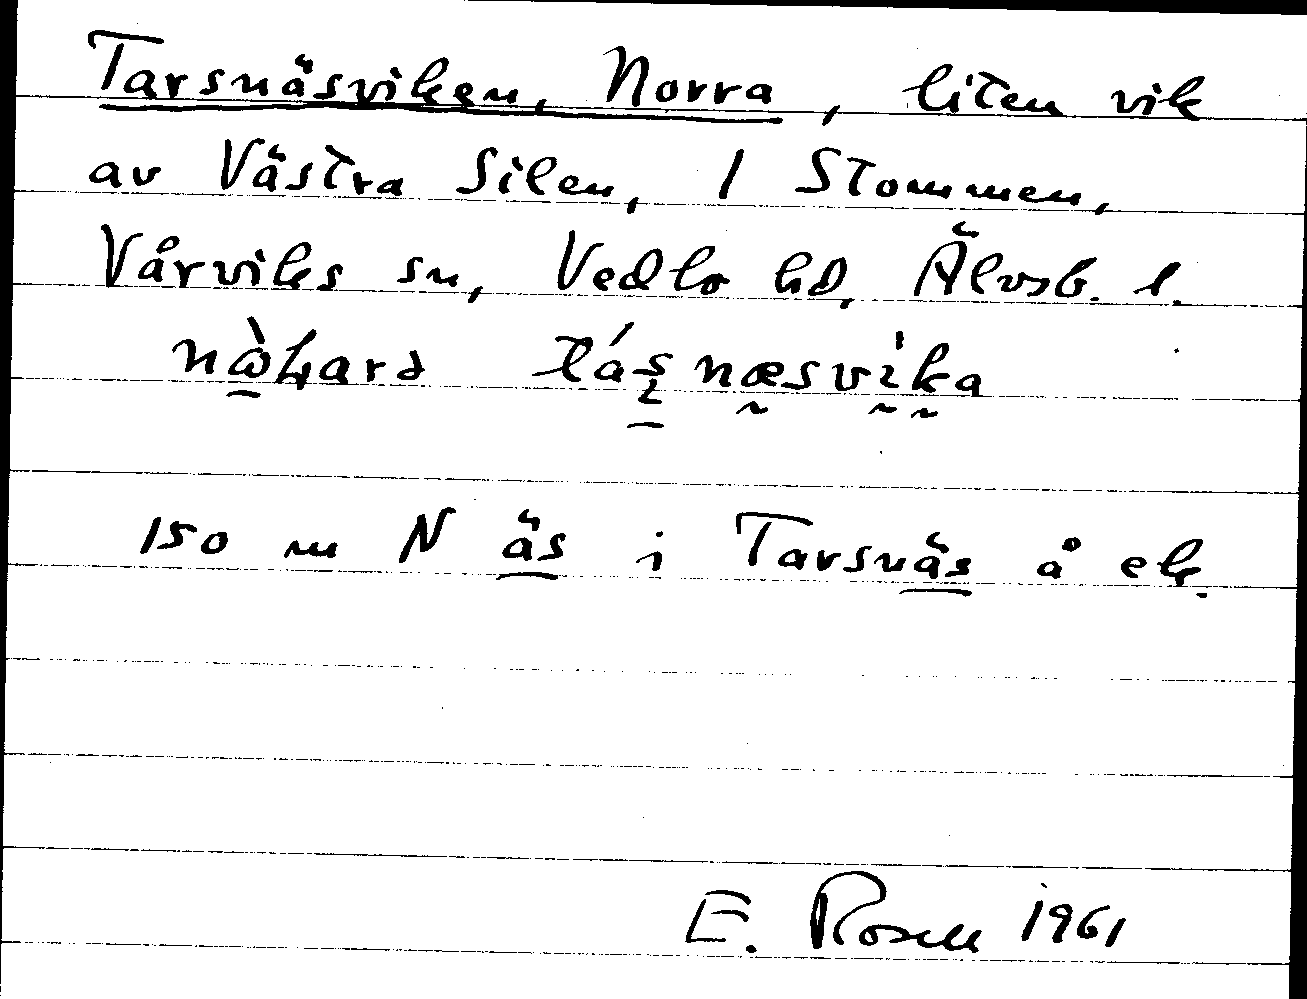 Tarsnäsviken, Norra, liten vik
av Västra Silen, 1 Stommen,
Vårviks sn, Vedbo hd, Älvsb. l.
150 m N äs i Tarsnäs å ek.
E. Rosell 1961